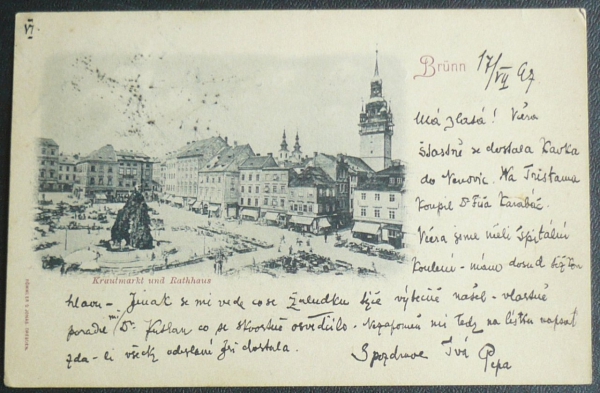 VI
Brünn
17/VII 97
Má zlatá! Včera
šťastně se dostala Kavka
do Na Tristama
koupil Dr Fůa Karabáč.
Včera jsme měli špitální
koulení - mám dosud
Krautmarkt und Rathhaus
hlavu - Jinak se mi vede co se žaludku týče výtečně našel - vlastně
poradil mi Dr. co se skvostně osvědčilo - Nezapomeň mi tedy na lístku napsat
zda-li všecky odeslané jsi dostala.
Spozdrave Tvá Pepa